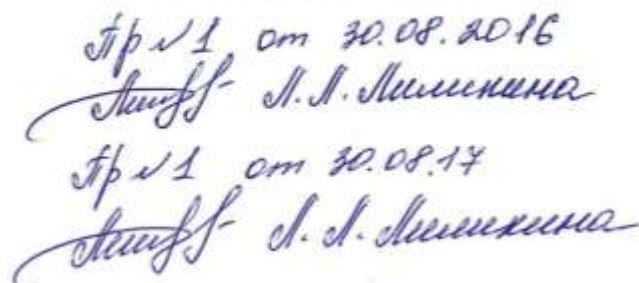 Пр №1 от 30.08.2016
Л.Л. Миликина
Пр №1 от 30.08.17
Л.Л. Миликина